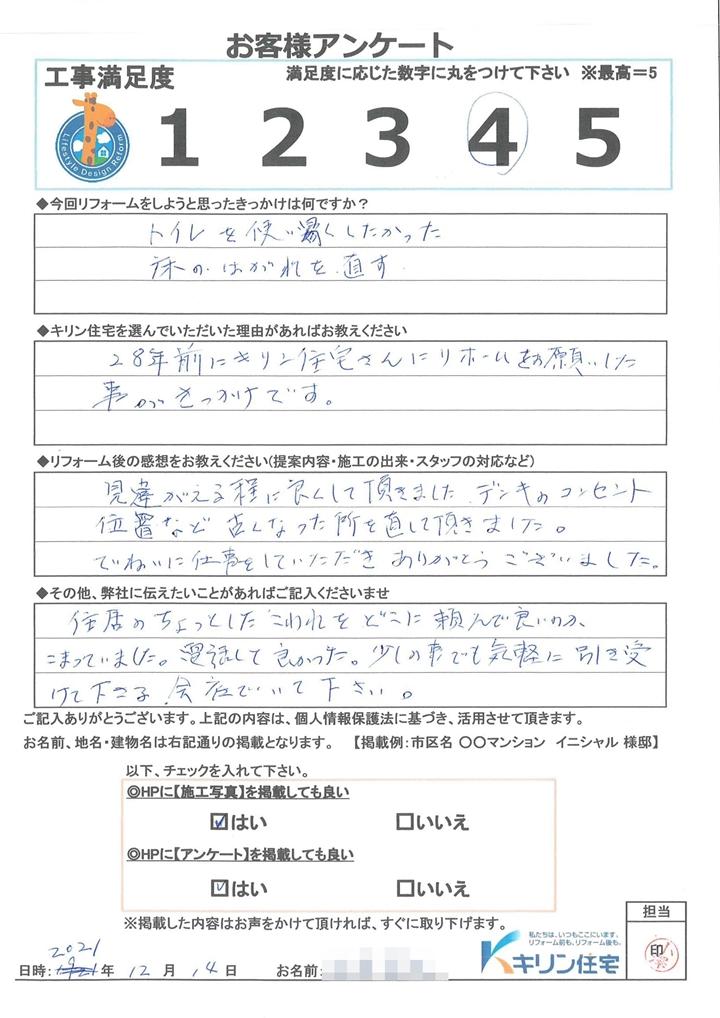 お客様アンケート
工事満足度
満足度に応じた数字に丸をつけて下さい ※最高＝5
Lifestyle Design Reform
1 2 3 4 5
◆今回リフォームをしようと思ったきっかけは何ですか？
トイレを使い易くしたかった
床のはがれを直す
◆キリン住宅を選んでいただいた理由があればお教えください
28年前にキリン住宅さんにリホームをお願いした
事がきっかけです。
◆リフォーム後の感想をお教えください(提案内容・施工の出来・スタッフの対応など)
見違がえる程に良くして頂きました デンキのコンセント
位置など古くなった所を直して頂きました。
ていねいに仕事をしていただきありがとうございました。
◆その他、弊社に伝えたいことがあればご記入くださいませ
住居のちょっとしたこわれをどこに頼んで良いのか、
こまっていました。電話して良かった。少しの事でも気軽に引き受
けて下さる会社でいて下さい。
ご記入ありがとうございます。上記の内容は、個人情報保護法に基づき、活用させて頂きます。
お名前、地名・建物名は右記通りの掲載となります。 【掲載例：市区名 〇〇マンション イニシャル 様邸】
以下、チェックを入れて下さい。
◎HPに【施工写真】を掲載しても良い
☑はい □いいえ
◎HPに【アンケート】を掲載しても良い
☑はい □いいえ
※掲載した内容はお声をかけて頂ければ、すぐに取り下げます。
担当
印
私たちは、いつもここにいます。
リフォーム前も、リフォーム後も。
キリン住宅
2021
日時: 年 12 月 14 日 お名前: